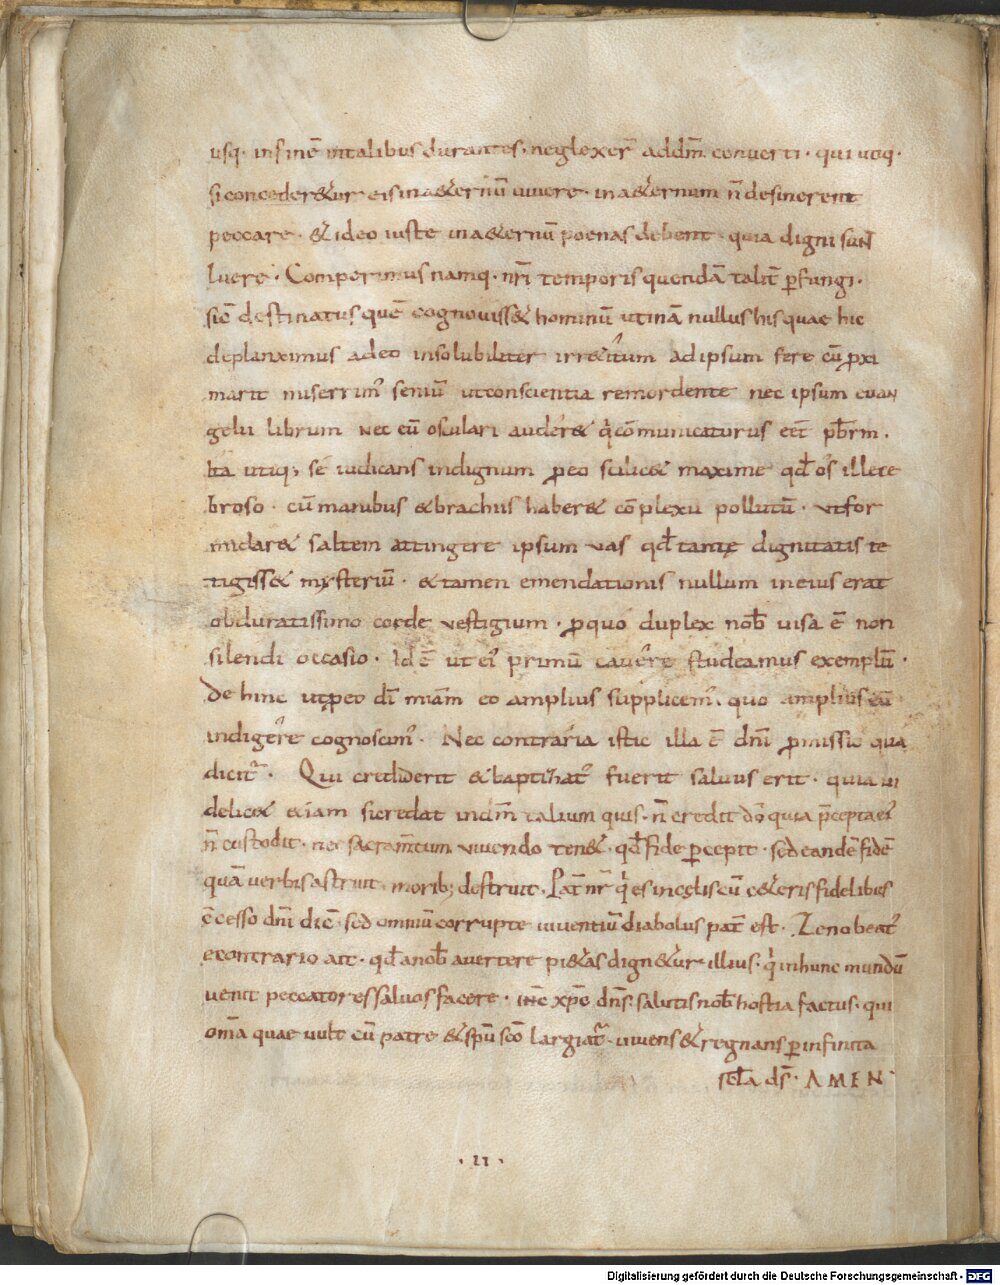 usq· in finē in talibus durantes· neglexer̄ ad dm̄ converti· qui utiq·
si concederet&ur eis in a&ernū vivere· in a&ernum n̄ desinerent
peccare· & ideo iuste in a&ernū poenas debent· quia digni sunt
luere· Comperimus namq· nr̄i temporis quendā talit̄ p̄fungi·
sic destinatus quē cognoviss& hominū utinā nullus his quae hic
deplanximus adeo insolubiliter irre&itum ad ipsum fere cū ꝓxi
marit miserrim᾽ seniū ut conscientia remordente nec ipsum evan
gelii librum nec eū osculari auder& q̇ cōmunicaturus eēt pb̄rm·
Ita utiq; se iudicans indignum ꝓ eo scilic& maxime qd̄ os illece
broso· cū manibus & brachiis haber& cōplexu pollutū· ut for
midar& saltem attingere ipsum vas qd̄ tantę dignitatis te
tigiss& mysteriū· & tamen emendationis nullum in eius erat
obduratissimo corde vestigium· ꝓ quo duplex nob̄ visa ē non
silendi occasio· Id ē ut ei᾽ primū cavere studeamus exemplū·
de hinc ut ꝓ eo dī miam̄ eo amplius supplicem᾽· quo amplius eū
indigere cognoscim᾽· Nec contraria istic illa ē dn̄i ꝓmissio qua
dicit᾽· Qui crediderit & baptizat᾽ fuerit salvus erit· quia vi
delic& etiam si credat in dm̄ talium quis· n̄ credit dō quia p̄cepta ei᾽
n̄ custodit· nec sacram̄tum vivendo ten&· qd̄ fide ꝑcepit· sed eandē fidē
quā verbis astruit· morib; destruit· Pat̄ nr̄ q̇ es in celis cū c&eris fidelibus
ēcesso dn̄i dic̄· sed omniū corrupte viventiū diabolus pat̄ est· Zeno beat᾽
e contrario ait· qd̄ a nob̄ avertere pi&as dign&ur illius· q̇ in hunc mundū
venit peccatores salvos facere· ihc̄ xpc̄ dn̄s· salutis nob̄ hostia factus· qui
om̄a quae vult cū patre & spū scō largiat᾽· vivens & regnans ꝑ infinita
scl̄a ds̄· AMEN·
· 11 ·
Digitalisierung gefördert durch die Deutsche Forschungsgemeinschaft - DFG